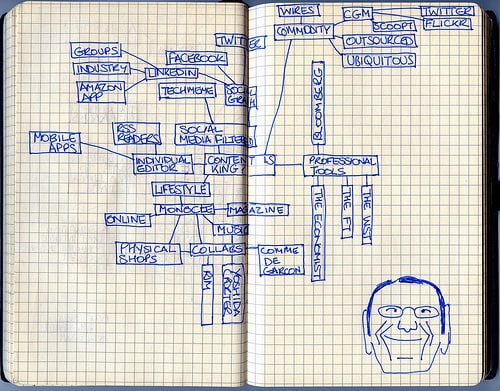 WIRES
CGM
TWITTER
FLICKR
SCOOPT
COMMODITY
OUTSOURCED
UBIQUITOUS
TWITTER
GROUPS
FACEBOOK
INDUSTRY
LINKEDIN
AMAZON
APP
TECHMEME
SOCIAL
GRAPH
BLOOMBERG
MOBILE
APPS
RSS
READERS
SOCIAL
MEDIA FILTER
INDIVIDUAL
EDITOR
CONTENT IS
KING?
PROFESSIONAL
TOOLS
LIFESTYLE
ONLINE
MONOCLE
MAGAZINE
MUSIC
THE ECONOMIST
THE FT
THE WSJ
PHYSICAL
SHOPS
COLLABS
COMME
DE
GARCON
RIM
YOSHIDA
PORTER